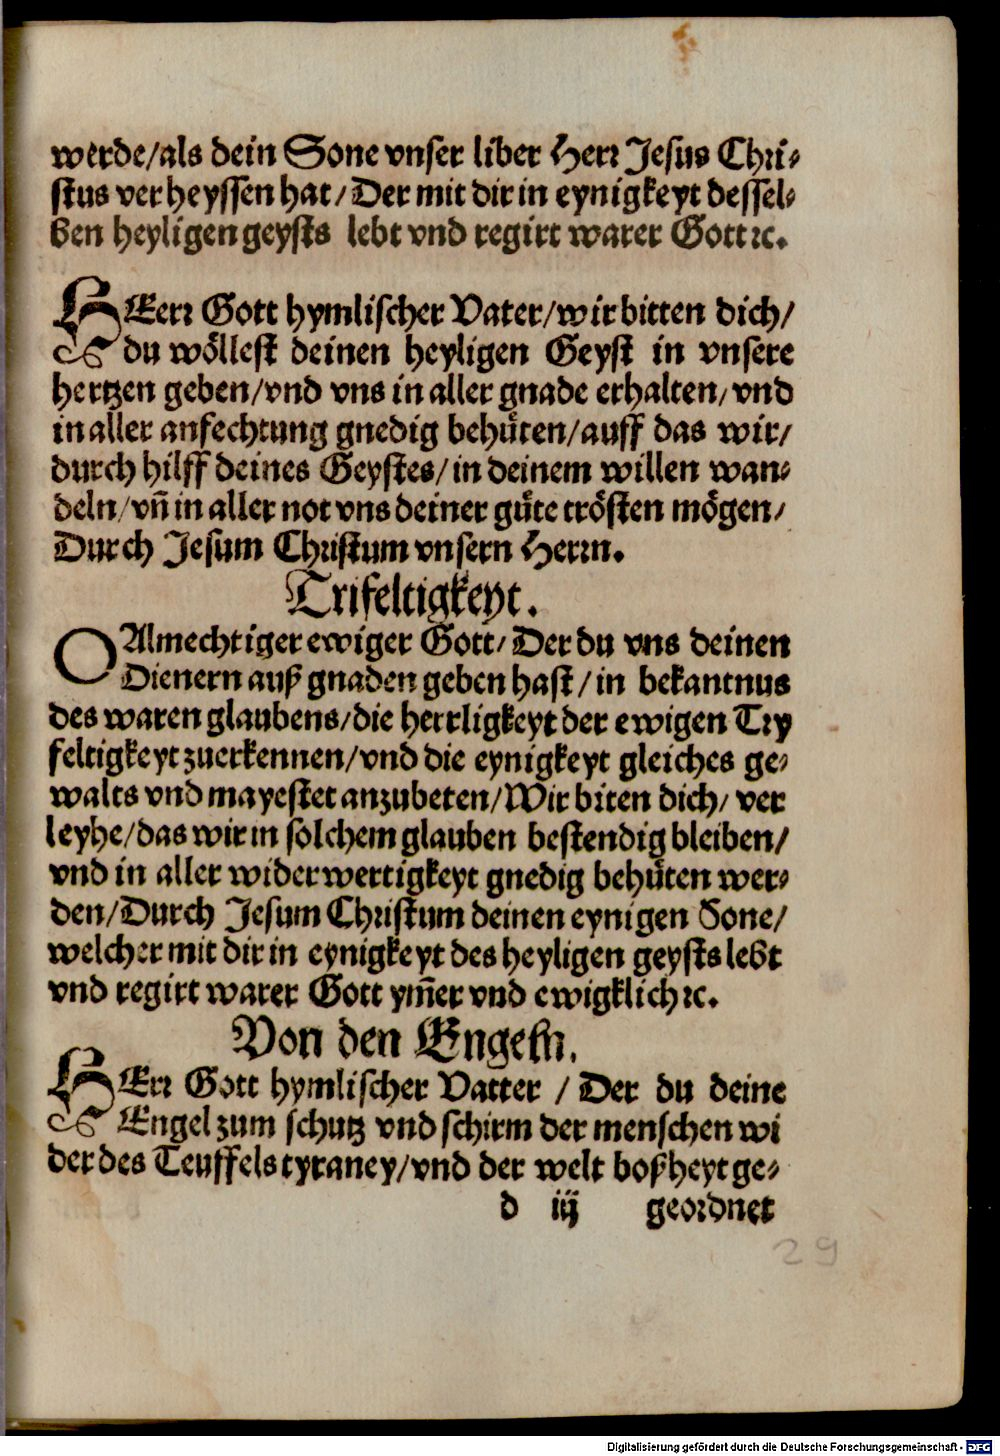 werde/als dein Sone vnser liber Herr Jesus Chri⸗
stus verheyssen hat/Der mit dir in eynigkeyt dessel⸗
ben heyligen geysts lebt vnd regirt warer Gott ꝛc.
HErr Gott hymlischer Vater/wir bitten dich/
du wöllest deinen heyligen Geyst in vnsere
hertzen geben/vnd vns in aller gnade erhalten/vnd
in aller anfechtung gnedig behuͤten/auff das wir/
durch hilff deines Geystes/in deinem willen wan⸗
deln/vn̄ in aller not vns deiner guͤte trösten mögen/
Durch Jesum Christum vnsern Herrn.
Trifeltigkeyt.
O Almechtiger ewiger Gott/Der du vns deinen
Dienern auß gnaden geben hast/in bekantnus
des waren glaubens/die herrligkeyt der ewigen Try
feltigkeyt zuerkennen/vnd die eynigkeyt gleiches ge⸗
walts vnd mayestet anzubeten/Wir biten dich/ver
leyhe/das wir in solchem glauben bestendig bleiben/
vnd in aller widerwertigkeyt gnedig behuͤten wer⸗
den/Durch Jesum Christum deinen eynigen Sone/
welcher mit dir in eynigkeyt des heyligen geysts lebt
vnd regirt warer Gott ym̄er vnd ewigklich ꝛc.
Von den Engeln.
HErr Gott hymlischer Vatter / Der du deine
Engel zum schutz vnd schirm der menschen wi
der des Teuffels tyraney/vnd der welt boßheyt ge⸗
d iij geordnet
29
Digitalisierung gefördert durch die Deutsche Forschungsgemeinschaft - DFG